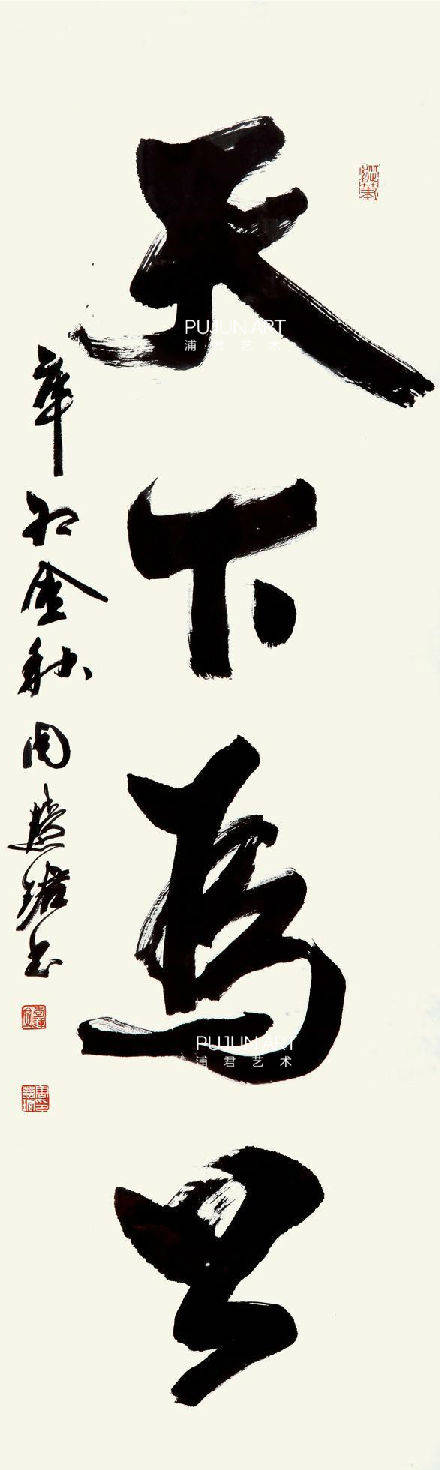 天下为公
辛卯金秋周慧珺书
PUJUN ART
浦君艺术
PUJUN ART
浦君艺术